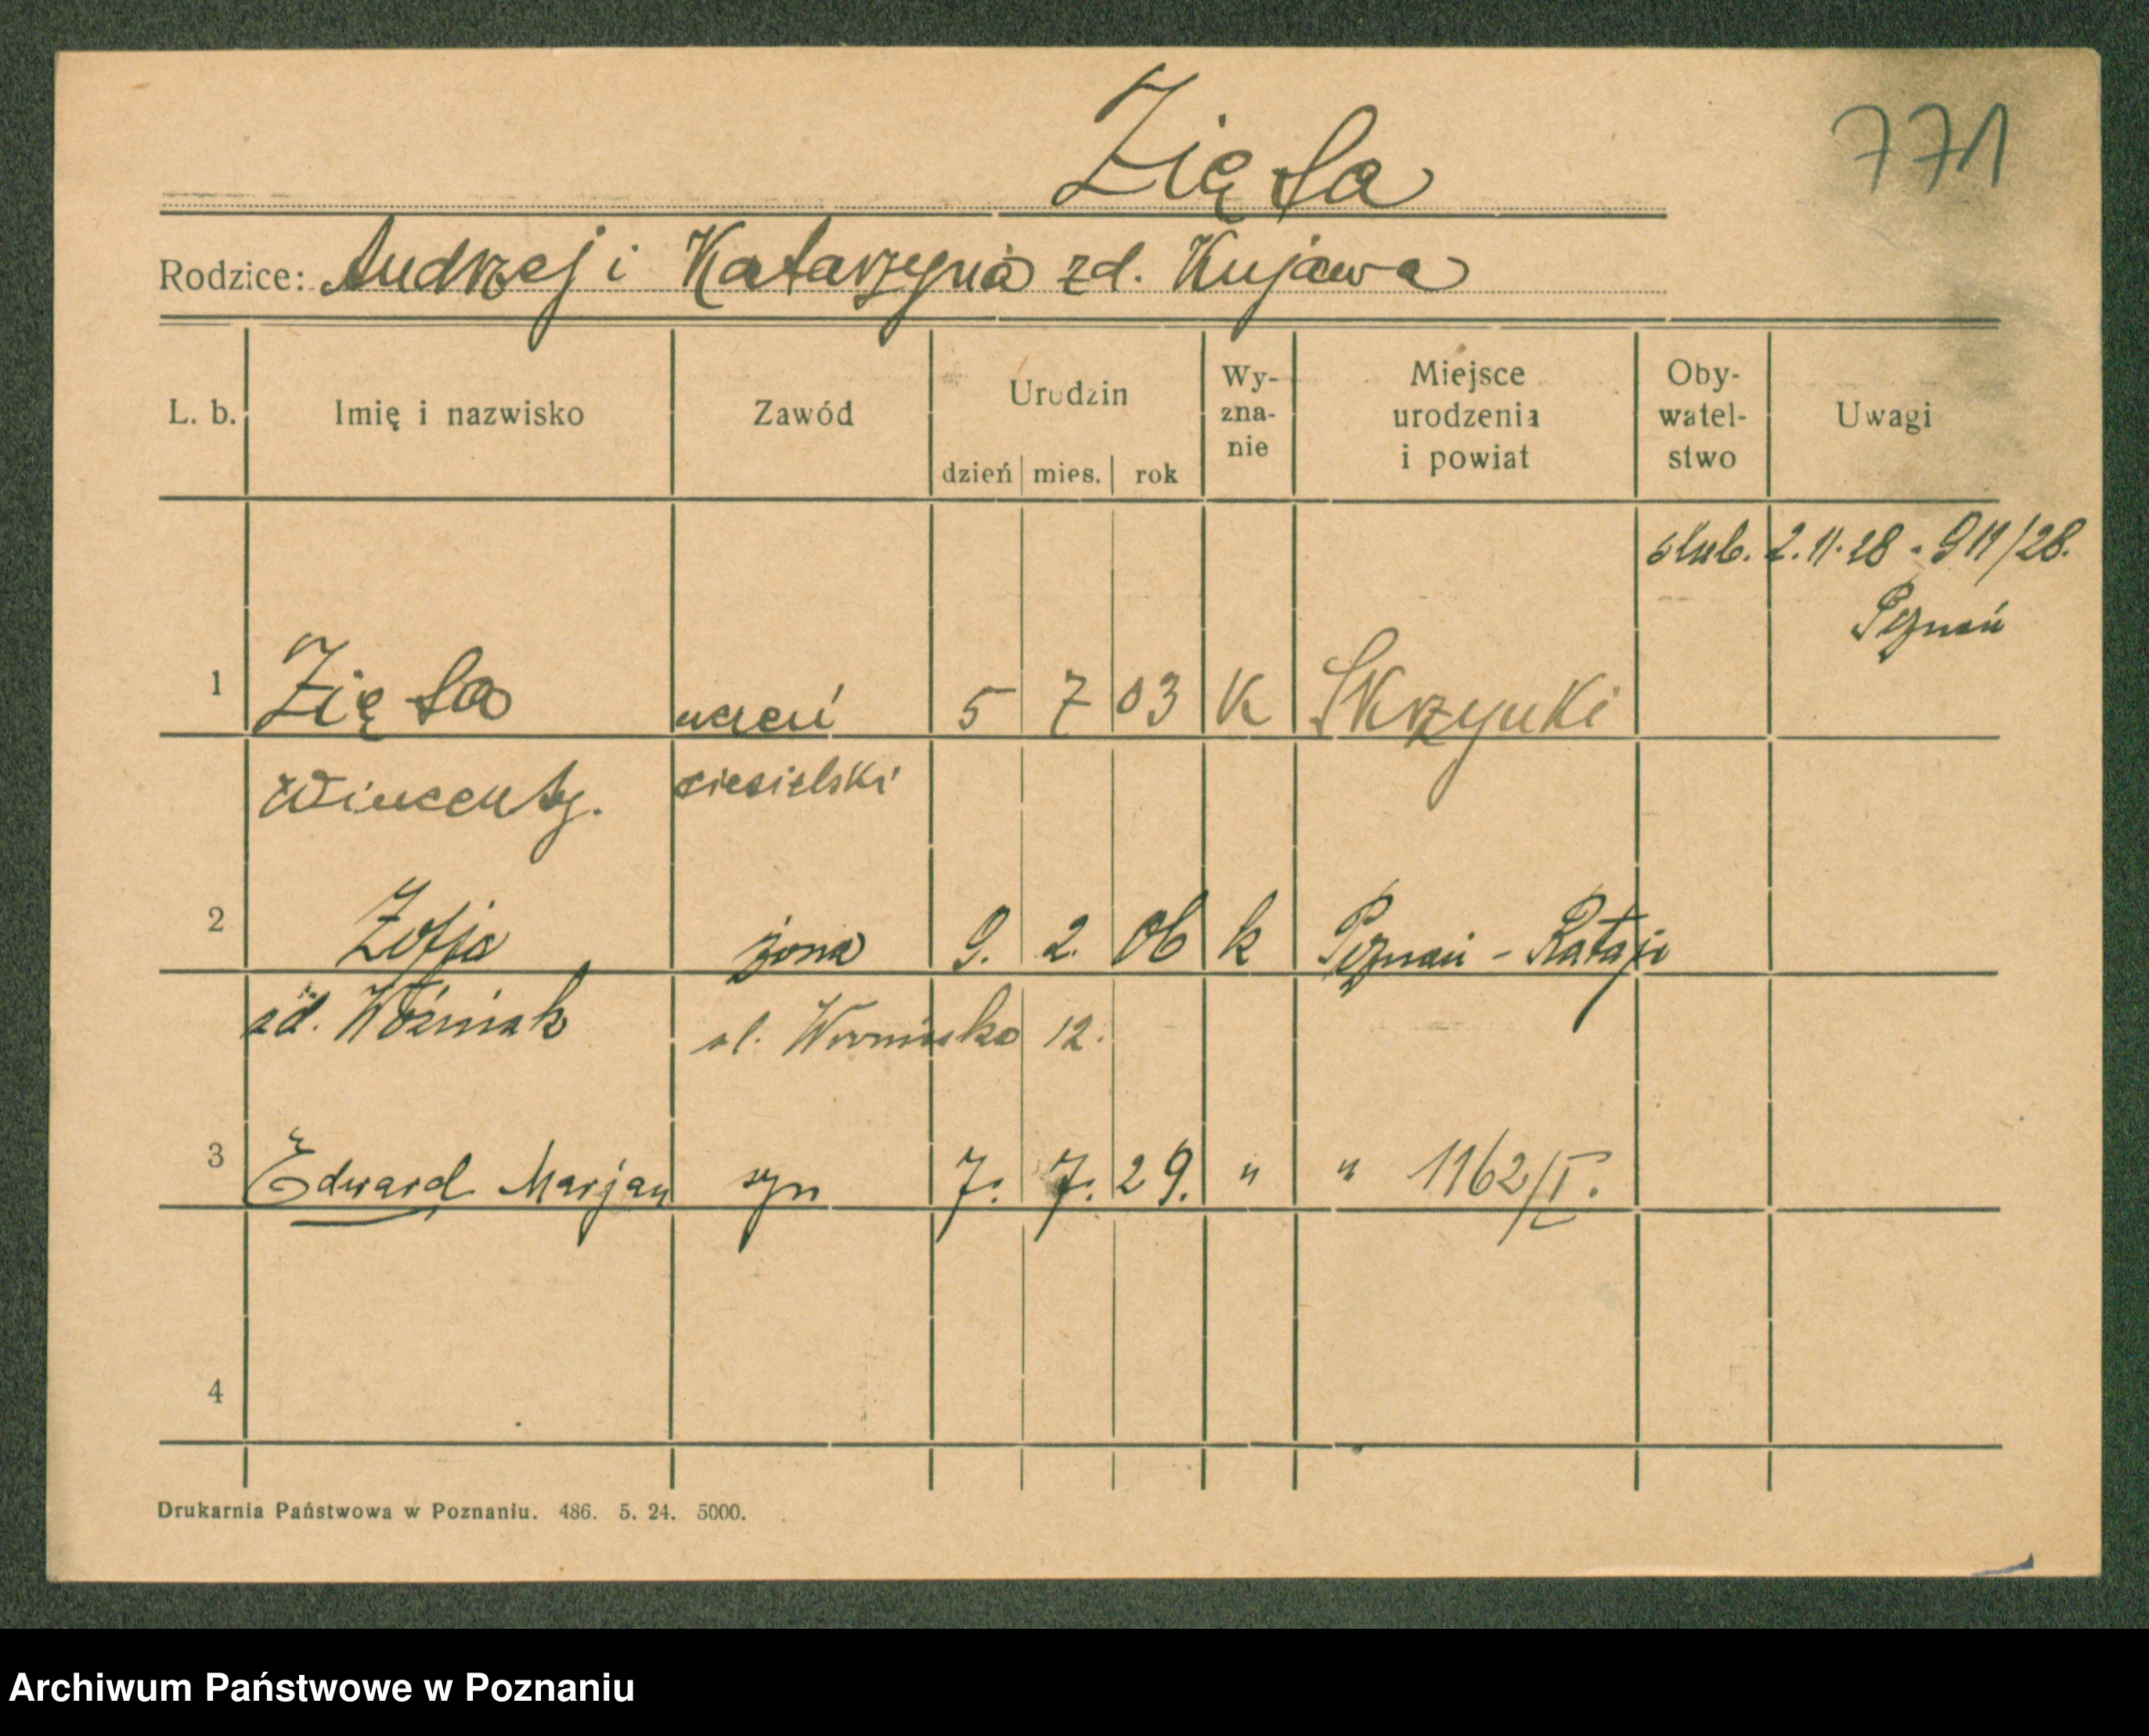 Zięta
771
Rodzice: Andrzej i Katarzyna zd. Kujawa
L. b. Imię i nazwisko Zawód Urodzin dzień mies. rok Wy-zna-nie Miejsce urodzenia i powiat Oby-watel-stwo Uwagi
ślub. 2.11.28 - 911/28.
Poznań
1 Zięta uczeń 5 7 03 K Skrzynki
Wincenty. ciesielski
2 Zofja żona 9. 2. 06 k Poznań - Rataje
zd. Woźniak 12.
3 Edward Marjan syn 7. 7. 29. " " 1162/I.
4
Drukarnia Państwowa w Poznaniu. 486. 5. 24. 5000.
Archiwum Państwowe w Poznaniu